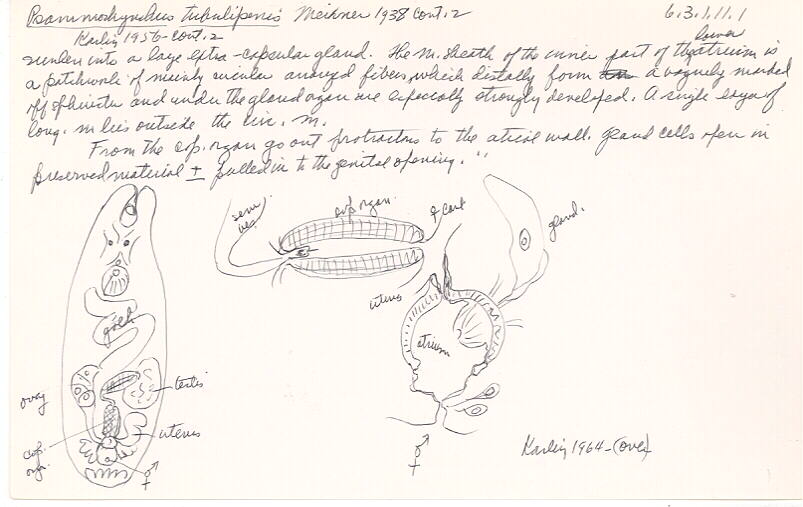 Psammorhynchus tubulipenis Meixner 1938 cont. 2
6.3.1.11.1
Karlin 1956-cont. 2
sunken into a large extra-capsular gland. The m. sheath of the inner part of the lower atrium is
a patchwork of mainly circular arranged fibers, which distally form a vaguely marked
off sphincter and under the gland organ are especially strongly developed. A single layer of
long. m lies outside the circ. m.
From the cop. organ go out protractors to the atrial wall. gland cells open in
preserved material ± pulled in to the genital opening."
sem. ves.
cop organ
♀ canl
gland.
uterus
atrium
testis
ovary
uterus
cop. orga.
⚥
⚥
Karlin 1964-(over)